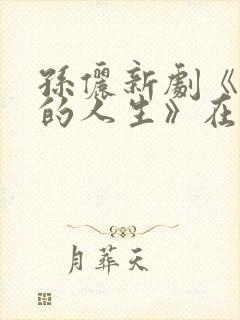 孫儷新劇《
的人生》在
月葬天